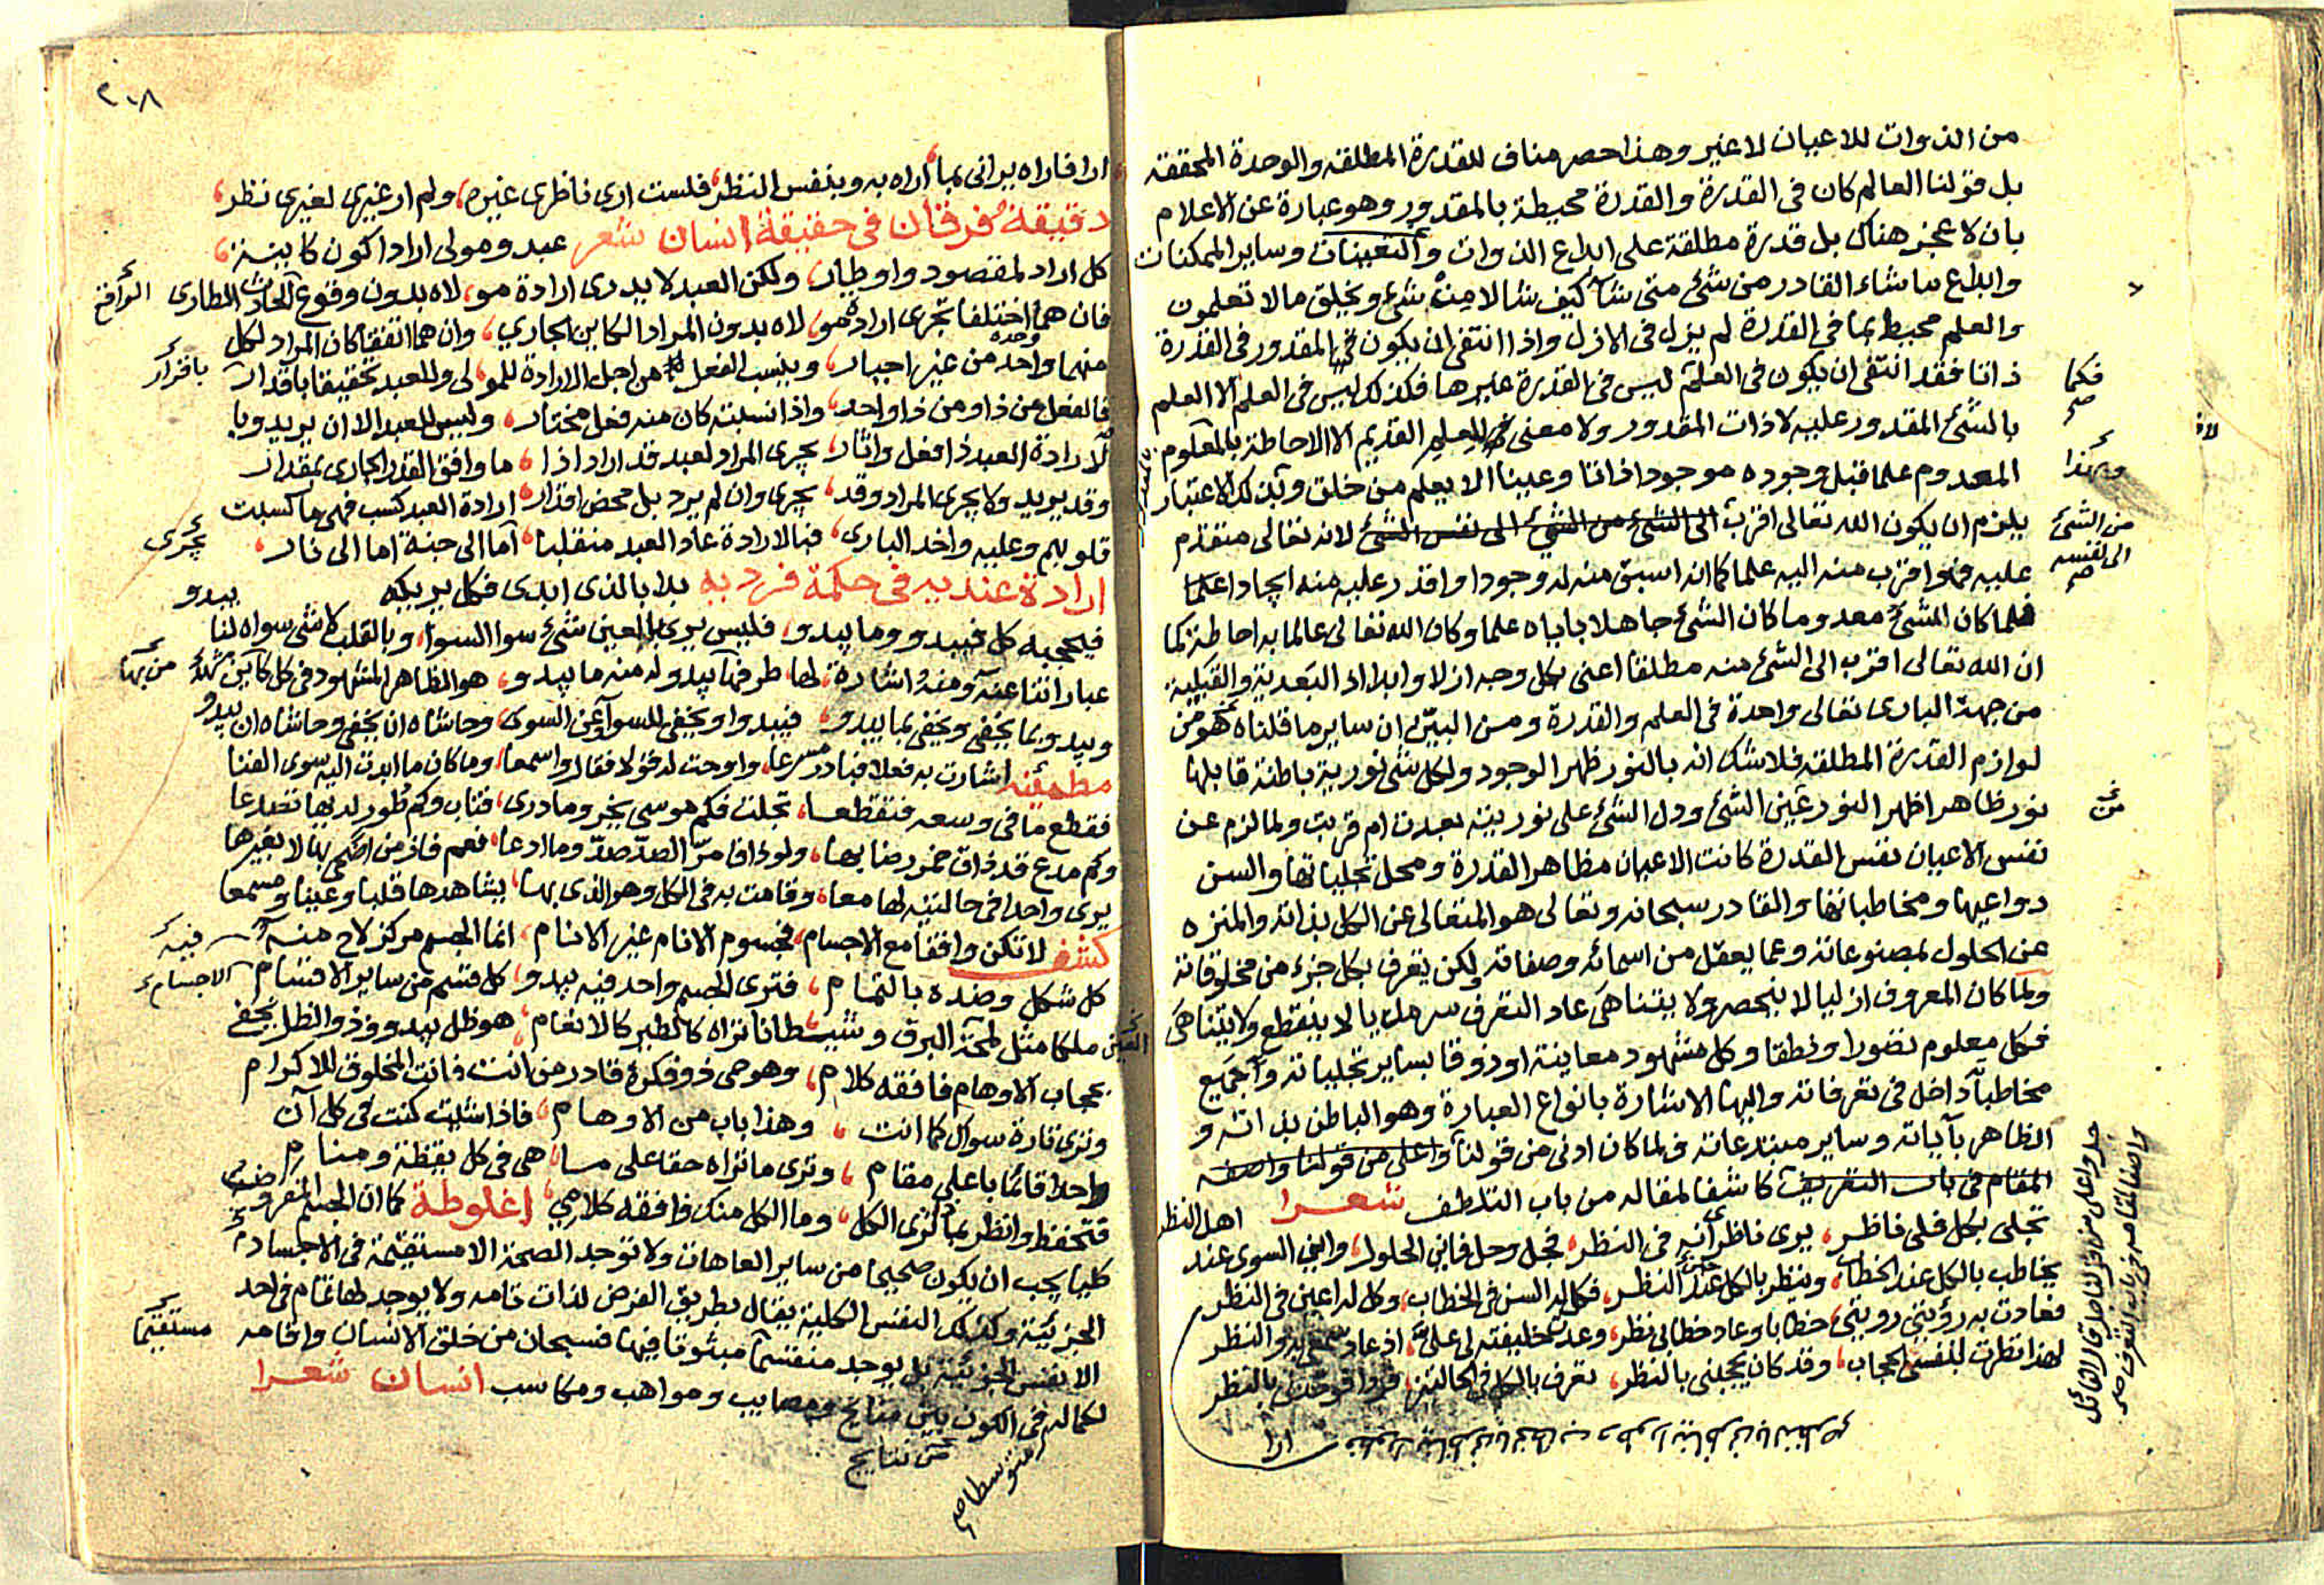 من الذوات للاعيان لا غير وهذا حصر مناف للقدرة المطلقه والوحدة المحققه
بل قولنا العالم كان فى القدرة والقدرة محيطة بالمقدور وهو عبارة عن الاعلام
بان لا عجز هناك بل قدرة مطلقة على ابداع الذوات والتعينات وساير الممكنات
وابداع ما شاء القادر من شئ متى شا كيف شا لا من شئ ويخلق ما لا تعلمون
والعلم محيط بما فى القدرة لم يزل فى الازل واذا انتفى ان يكون فى المقدور فى القدرة
ذاتا فقد انتفى ان يكون فى العلم ليس فى القدرة غيرها فكذلك ليس فى العلم الا العلم
فكما
بالشئ المقدور عليه لا ذات المقدور ولا معنى للعلم القديم الا الاحاطة بالمعلوم
وبهذا
المعدوم علما قبل وجوده موجودا ذاتا وعينا الا يعلم من خلق وبذلك الاعتبار
يلزم ان يكون الله تعالى اقرب الى الشئ من الشئ الى نفس الشئ لانه تعالى متقدم
من الشئ
الى نفسه
صح
عليه فهو اقرب منه اليه علما كما انه اسبق منه له وجودا واقدر عليه منه ايجادا علما
فلما كان الشئ معدوما كان الشئ جاهلا باياه علما وكان الله تعالى عالما به احاطة كما
ان الله تعالى اقرب الى الشئ منه مطلقا اعنى بكل وجه ازلا وابدا اذ البعدية والقبلية
من جهة البارى تعالى واحدة فى العلم والقدرة ومن البين ان ساير ما قلناه هو من
لوازم القدرة المطلقه فلا شك انه بالنور ظهر الوجود ولكل شئ نورية باطنة قابلها
نور ظاهر اظهر النور عين الشئ ودل الشئ على نوريته بعدت ام قربت ولما لزم عن
من
نفس الاعيان نفس القدرة كانت الاعيان مظاهر القدرة ومحل تجلياتها والسن
دواعيها ومخاطباتها والقادر سبحانه وتعالى هو المتعالى عن الكل بذاته والمنزه
عن الحلول بمصنوعاته وعما يعقل من اسمائه وصفاته ولكن تعرف بكل جزء من مخلوقاته
ولما كان المعروف ازليا لا ينحصر ولا يتناهى عاد التعرف سرمديا لا ينقطع ولا يتناهى
فكل معلوم تصورا ونطقا وكل مشهود معاينة او ذوقا بساير تجلياته وجميع
مخاطباته داخل فى تعرفاته واليها الاشارة بانواع العبارة وهو الباطن بذاته و
الظاهر بآياته وساير مبتدعاته ولما كان ادنى من قولنا واعلى من قولنا واصفه
المقام فى باب التعريف كاشفا لمقاله من باب التلطف شعرا
جل واعلى من قولنا
تجلى بكل فلى ناظر، يرى ناظرى انه فى النظر، فجل وحل فاين الحلول، واين السوى عند اهل النظر
يخاطب بالكل عند الخطاب، وينظر بالكل عند النظر، فكل له السن فى الخطاب، وكل له اعين فى النظر
فعادت به رؤيتى رويتى، خطابا وعاد خطابى نظر، وعدت خليفته لى على، اذ عاد سمعى له والنظر
لهذا نظرت لنفسى الحجاب، وقد كان يحجبنى بالنظر، تعرف بالكل فى الحالتين، بالنظر
ارا
٢٠٨
ارا فاراه يرانى بما اراه به وبنفس النظر، فلست ارى ناظرى غيره، ولم ار غيرى لغيرى نظر،
دقيقة فرقان فى حقيقة انسان شعر عبد ومولى ارادا كون كاينة،
كل اراد لمقصود واوطار، ولكن العبد لا يدرى ارادة مو، لاه بدون وقوع الحادث الطارى
الواقع
فان هما اختلفا تجرى ارادة مو، لاه بدون المراد الكاين الجاري، وان هما اتفقا كان المراد لكل
منهما واحد من غير اجبار، وينسب الفعل من اجل الارادة للمو، لى وللعبد تحقيقا باقدار
باقرار
فالفعل من ذا ومن ذا واحد، واذا نسبته كان منه فعل مختار، وليس للعبد الا ان يريد وبا
لارادة العبد ذا فعل واثار، يجرى المراد لعبد قد اراد اذا، ما وافق القدر الجارى بمقدار
وقد يريد ولا يجرى المراد وقد، يجرى وان لم يرد بل محض اقدار، ارادة العبد كسب فهى ما كسبت
قلوبهم وعليه واخد البارى، فبالارادة عاد العبد منقلبا، اما الى جنة اما الى نار،
يجرى
ارادة عنديه فى حكمة فرديه بدا بالذى ابدى فكل يريكه يبدو
فيحجبه كل فيبدو وما يبدو، فليس يرى بالعين شئ سوا السوا، وبالقلب لا شئ سواه لنا
عباراتنا عنه ومنه اشارة، لها طرفها يبدو له منه ما يبدو، هو الظاهر المشهود فى كل كاين
ويبدو بما يخفى ويخفى بما يبدو، فيبدو او يخفى للسوا وعن السوى، وحاشاه ان يخفى وحاشاه ان يبدو
مطمئنه اشارت به فعلا فبادر مسرعا، واوحت له قولا فقال واسمعا، وما كان ما ابدت اليه سوى الفنا
فقطع ما فى وسعه فتقطعا، تجلت فكم موسى يخر وما درى، فتاب وكم طور لديها تصدعا
وكم مدع قد ذاق خمر رضابها، ولو ذاق مر الصد صد وما ادعا، نعم فاز من اضحى بها لا بغيرها
يرى واحدا فى حالتيه لها معا، وقامت به فى الكل وهو الذى بها، يشاهدها قلبا وعينا ومسمعا
كشف لا تكن واقفا مع الاجسام، فجسوم الانام غير الانام، انما الجسم مركز لاح منه
فيه
كل شكل وضده بالتمام، فترى الجسم واحد فيه يبدو، كل قسم من ساير الاقسام
الاجسام
ملكا مثل لمحة البرق وشيطانا تراه كالطير كالانعام، هو ظل يبدو وذو الظل يخفى
بحجاب الاوهام فافقه كلام، وهو حى ذو فكرة قادر من انت فانت المخلوق للاكرام
وترى تارة سواك كما انت، وهذا باب من الاوهام، فاذا شئت كنت فى كل آن
واحدا قائما باعلى مقام، وترى ما تراه حقا على ما، هى فى كل يقظة ومنام
فتحفظ وانظر بما لترى الكل، وما الكل منك فافقه كلامي، اغلوطة كما ان الجسم المفروض
كليا يجب ان يكون صحيحا من ساير العاهات ولا توجد الصحة الا مستقيمة فى الاجساد
الجزئية وكذلك النفس الكلية يقال بطريق الفرض لذات تامه ولا يوجد لها تمام فى احد
الانفس الجزئية بل يوجد منقسما مبثوثا فيها فسبحان من خلق الانسان واقامه
مستقيما
لكماله فى الكون بين نتايج ومصايب ومواهب ومكاسب انسان شعرا
من نتايج
متوسطا صح